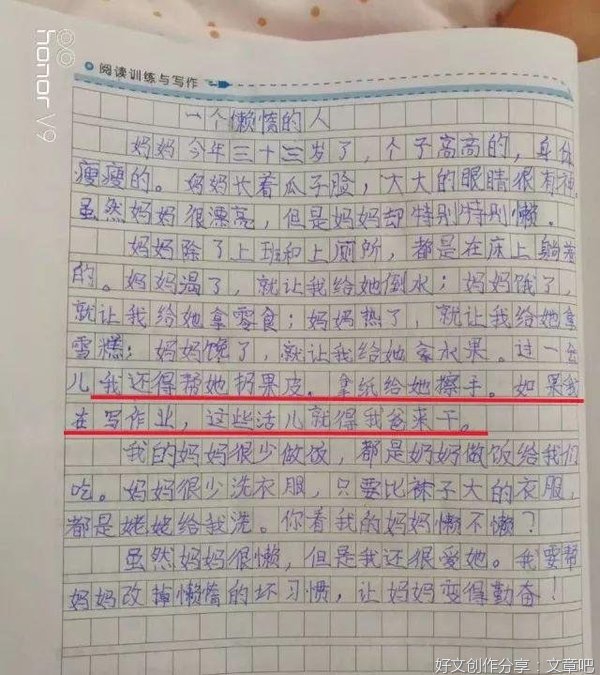 honor V9
阅读训练与写作
一个懒惰的人
妈妈今年三十三岁了，个子高高的，身体
瘦瘦的。妈妈长着瓜子脸，大大的眼睛很有神。
虽然妈妈很漂亮，但是妈妈却特别特别懒。
妈妈除了上班和上厕所，都是在床上躺着
的。妈妈渴了，就让我给她倒水；妈妈饿了，
就让我给她拿零食；妈妈热了，就让我给她拿
雪糕；妈妈馋了，就让我给她拿水果。过一会
儿我还得帮她扔果皮。拿纸给她擦手。如果我
在写作业，这些活儿就得我爸来干。
我的妈妈很少做饭，都是奶奶做饭给我们
吃。妈妈很少洗衣服，只要比袜子大的衣服，
都是姥姥给我洗。你看我的妈妈懒不懒？
虽然妈妈很懒，但是我还很爱她。我要帮
妈妈改掉懒惰的坏习惯，让妈妈变得勤奋！
好文创作分享：文章吧